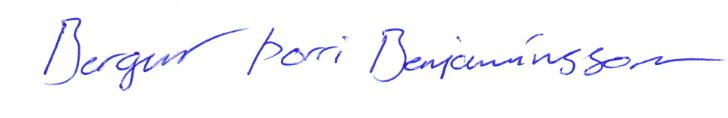 Bergur Þorri Benjamínsson